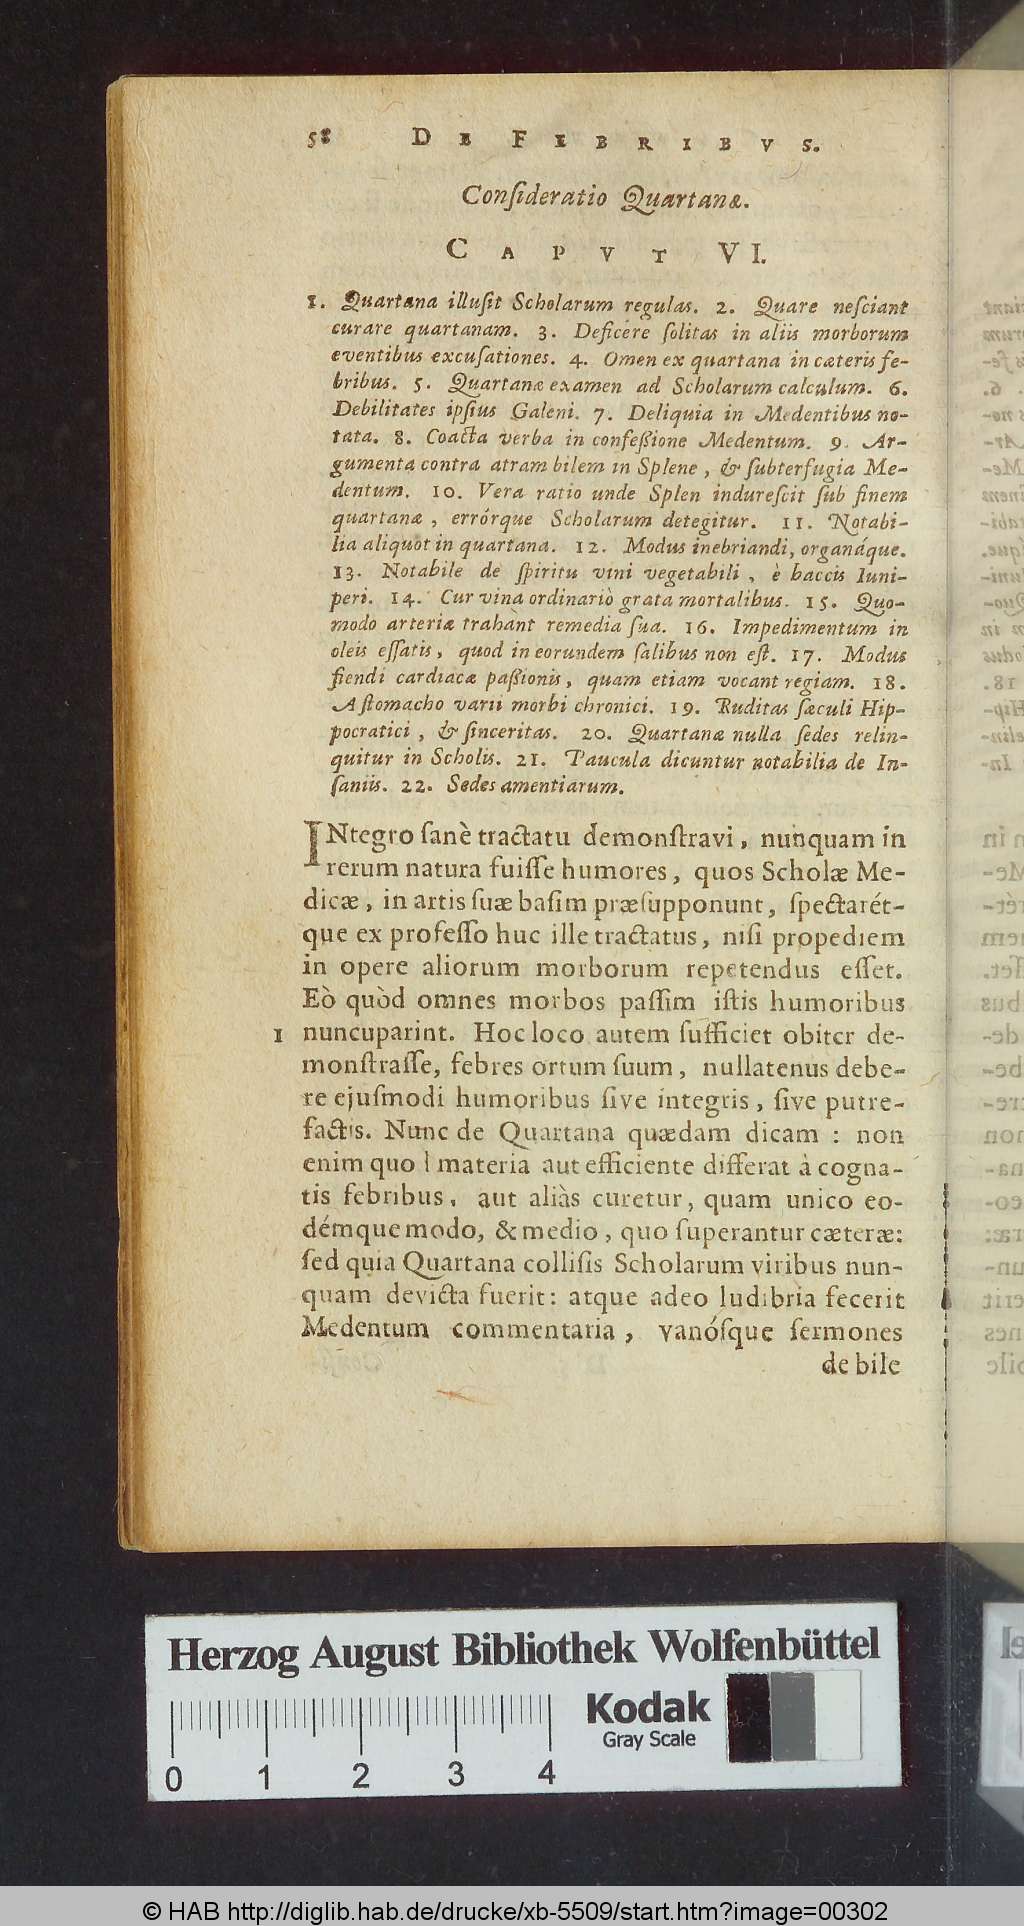 58 DE FEBRIBVS.
Conſideratio Quartanæ.
CAPVT VI.
1. Quartana illuſit Scholarum regulas. 2. Quare neſciant
curare quartanam. 3. Deficere ſolitas in aliis morborum
eventibus excuſationes. 4. Omen ex quartana in cæteris fe-
bribus. 5. Quartanæ examen ad Scholarum calculum. 6.
Debilitates ipſius Galeni. 7. Deliquia in Medentibus no-
tata. 8. Coacta verba in confeßione Medentum. 9. Ar-
gumenta contra atram bilem in Splene, & ſubterfugia Me-
dentum. 10. Vera ratio unde Splen indureſcit ſub finem
quartanæ, errórque Scholarum detegitur. 11. Notabi-
lia aliquot in quartana. 12. Modus inebriandi, organáque.
13. Notabile de ſpiritu vini vegetabili, è baccis Iuni-
peri. 14. Cur vina ordinariò grata mortalibus. 15. Quo-
modo arteriæ trahànt remedia ſua. 16. Impedimentum in
oleis eſſatis, quod in eorundem ſalibus non eſt. 17. Modus
fiendi cardiacæ paßionis, quam etiam vocant regiam. 18.
A ſtomacho varii morbi chronici. 19. Ruditas ſæculi Hip-
pocratici, & ſinceritas. 20. Quartanæ nulla ſedes relin-
quitur in Scholis. 21. Paucula dicuntur notabilia de In-
ſaniis. 22. Sedes amentiarum.
INtegro ſanè tractatu demonſtravi, nunquam in
rerum natura fuiſſe humores, quos Scholæ Me-
dicæ, in artis ſuæ baſim præſupponunt, ſpectarét-
que ex profeſſo huc ille tractatus, niſi propediem
in opere aliorum morborum repetendus eſſet.
Eò quòd omnes morbos paſſim iſtis humoribus
1 nuncuparint. Hoc loco autem ſufficiet obiter de-
monſtraſſe, febres ortum ſuum, nullatenus debe-
re ejuſmodi humoribus ſive integris, ſive putre-
factis. Nunc de Quartana quædam dicam : non
enim quod materia aut efficiente differat à cogna-
tis febribus, aut aliàs curetur, quam unico eo-
démque modo, & medio, quo ſuperantur cæteræ:
ſed quia Quartana colliſis Scholarum viribus nun-
quam devicta fuerit: atque adeo ludibria fecerit
Medentum commentaria, vanóſque ſermones
de bile
Herzog August Bibliothek Wolfenbüttel
Kodak
Gray Scale
0 1 2 3 4
© HAB http://diglib.hab.de/drucke/xb-5509/start.htm?image=00302